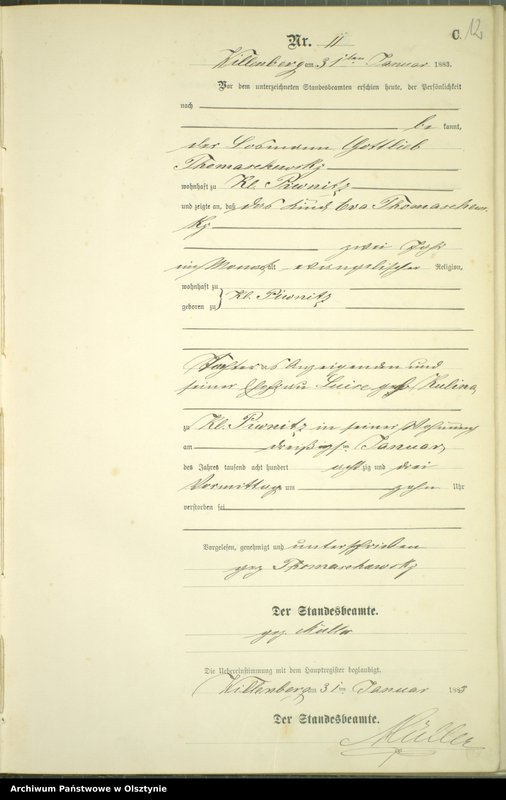 C. 12.
Nr. 11
Willenberg am 31ten Januar 1883.
Vor dem unterzeichneten Standesbeamten erschien heute, der Persönlichkeit
nach
be kannt,
der Losmann Gottlieb
Thomaschewsky
wohnhaft zu Kl. Piwnitz
und zeigte an, daß das Kind Eva Thomaschew-
sky
zwei Jahr
ein Monat alt evangelischer Religion,
wohnhaft zu
Kl. Piwnitz
geboren zu
Tochter des Anzeigenden und
seiner Ehefrau Luise geb. Kulina
zu Kl. Piwnitz in seiner Wohnung
am dreißigsten Januar
des Jahres tausend acht hundert achtzig und drei
Vormittags um zehn Uhr
verstorben sei
Vorgelesen, genehmigt und unterschrieben
gez Thomaschewsky
Der Standesbeamte.
gez. Müller
Die Uebereinstimmung mit dem Hauptregister beglaubigt.
Willenberg am 31ten Januar 1883
Der Standesbeamte.
Müller
Archiwum Państwowe w Olsztynie